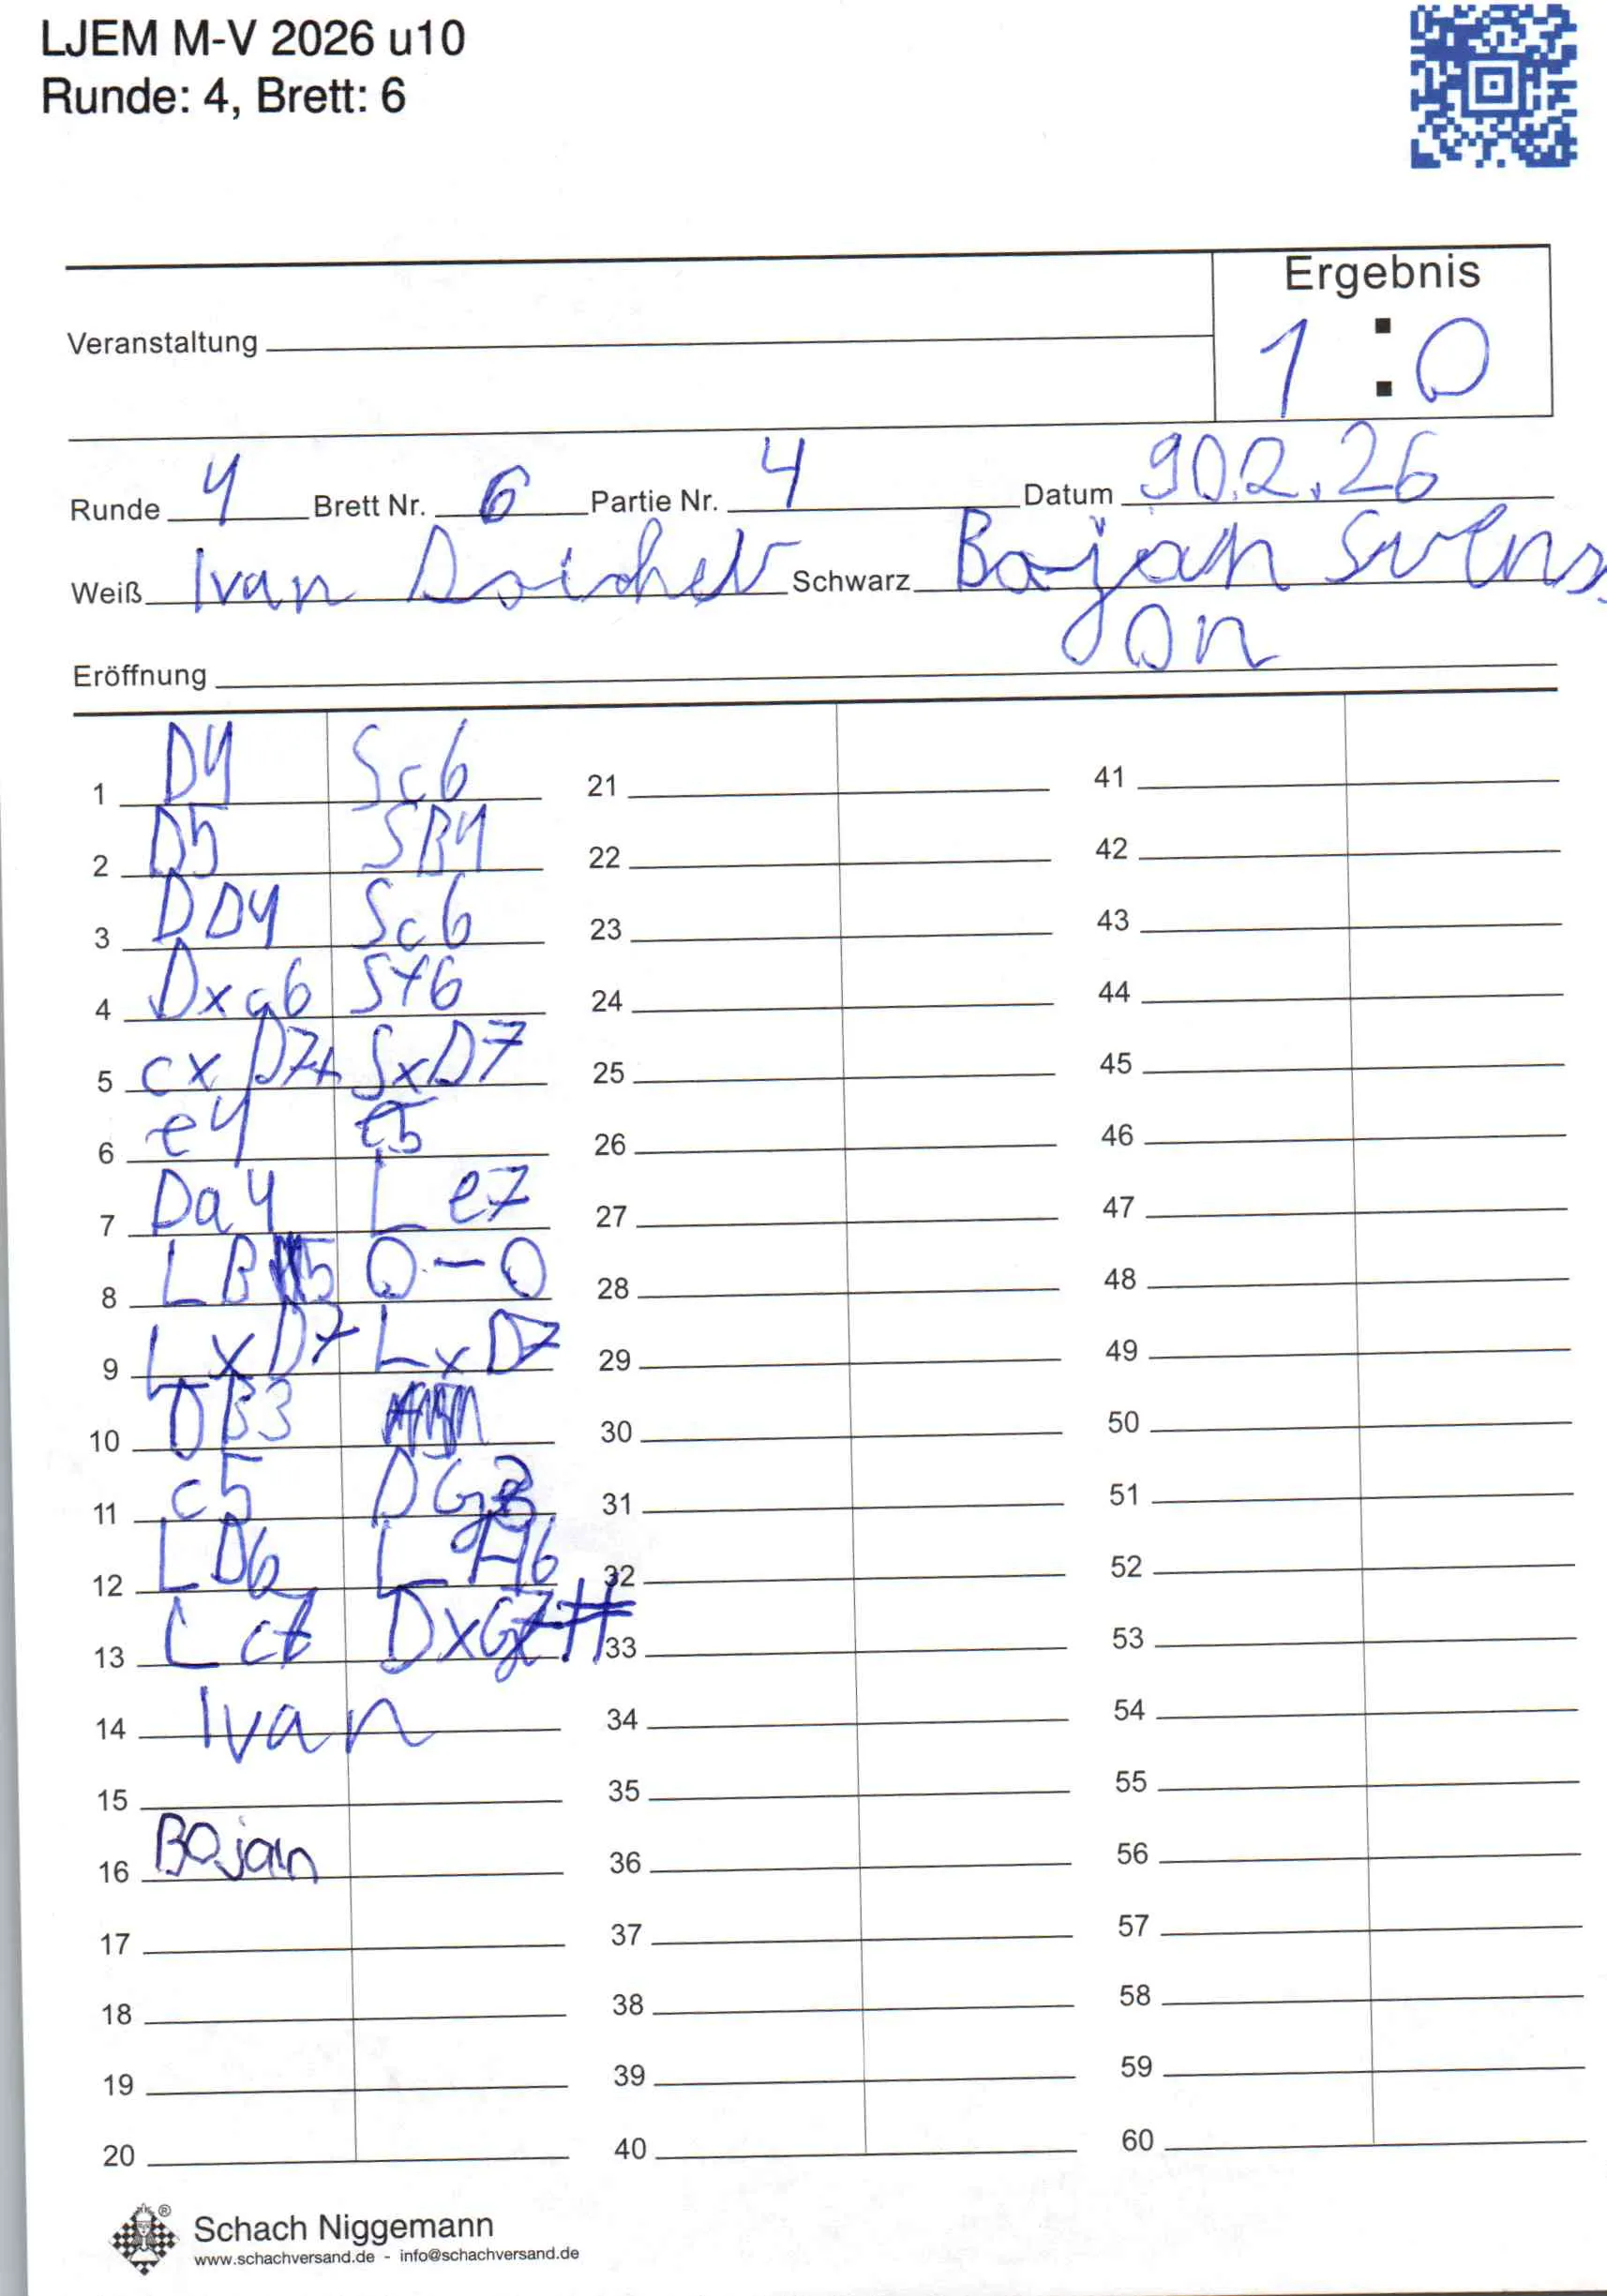 LJEM M-V 2026 u10
Runde: 4, Brett: 6
Ergebnis
1 : 0
Veranstaltung
Runde 4 Brett Nr. 6 Partie Nr. 4 Datum 90.2.26
Weiß Ivan Schwarz Bojan Svens
on
Eröffnung
1 D4 Sc6 21 41
2 D5 SB4 22 42
3 DD4 Sc6 23 43
4 Dxc6 Sf6 24 44
5 cxD7+ SxD7 25 45
6 e4 e5 26 46
7 Da4 Le7 27 47
8 LB5 0-0 28 48
9 LxD7 LxD7 29 49
10 DB3 30 50
11 c5 DG3 31 51
12 LD6 LH6 32 52
13 Lc7 DxG7# 33 53
14 Ivan 34 54
15 35 55
16 Bojan 36 56
17 37 57
18 38 58
19 39 59
20 40 60
® Schach Niggemann
www.schachversand.de - info@schachversand.de